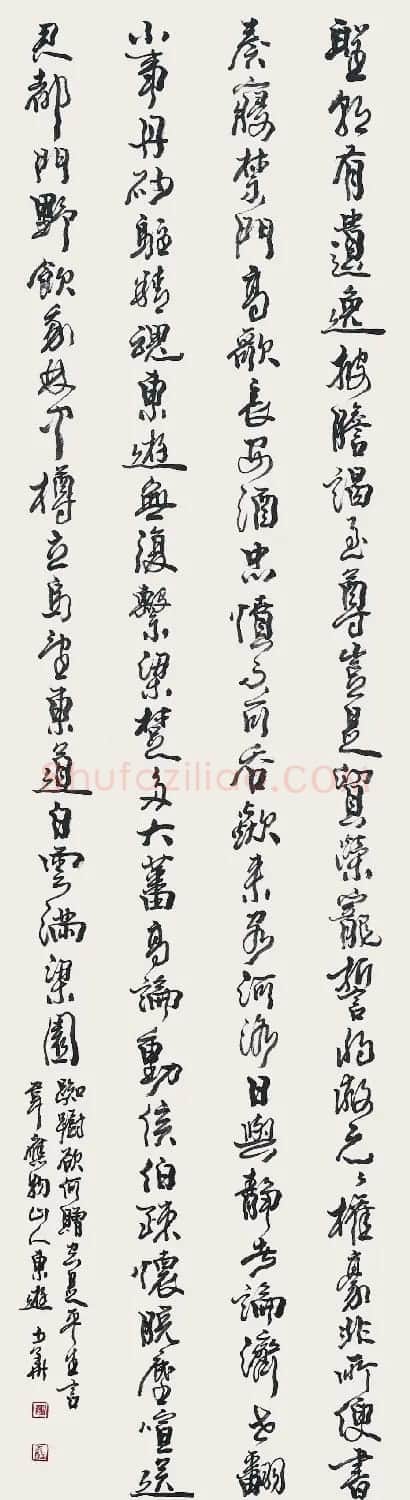 聖朝有遺逸披膽謁至尊豈是貿榮寵誓將救元々權豪非所便書
奏寢禁門高歌長安酒忠憤不可吞欻來客河洛日與靜者論濟世翻
小事丹砂駐精魂東遊無復繫梁楚多大蕃高論動侯伯疎懷脫塵喧送
君都門野飲我林中樽立馬望東道白雲滿梁園
踟躕欲何贈空是平生言
韋應物山人東遊
shufaziliao.com